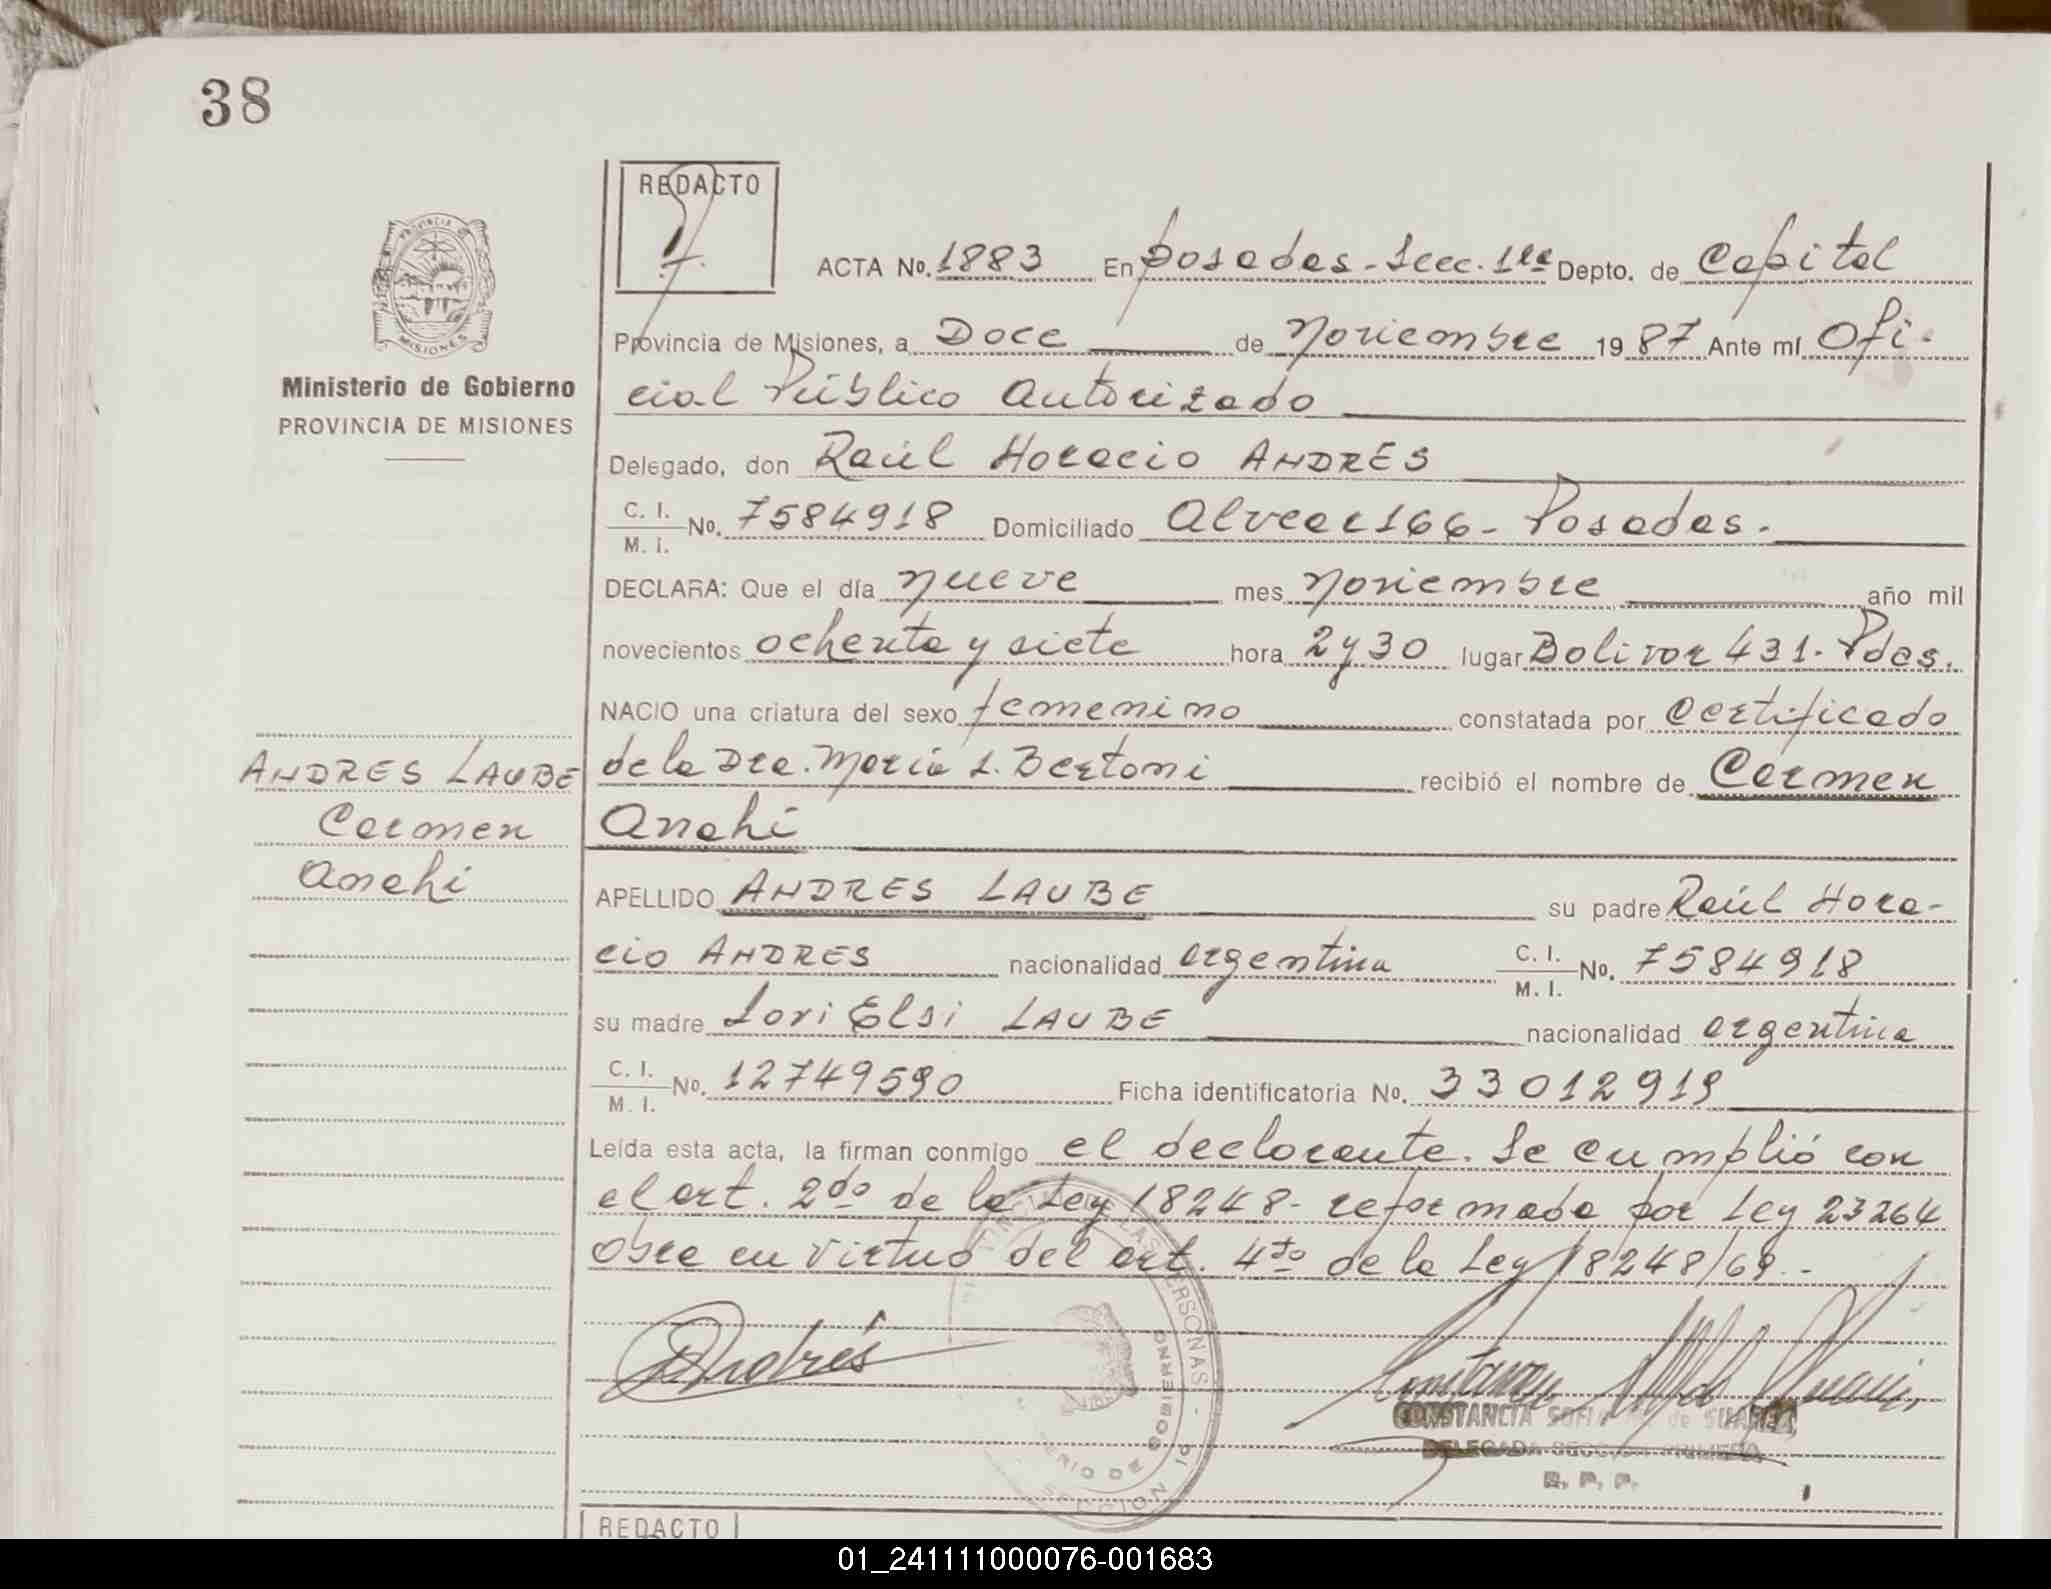 38
REDACTO
PROVINCIA DE
MISIONES
Ministerio de Gobierno
PROVINCIA DE MISIONES
ANDRES LAUBE
Carmen
Anahi
ACTA No. 1883 En Posadas-Secc. 1ra Depto. de Capital
Provincia de Misiones, a Doce de Noviembre 1987 Ante mí Ofi-
cial Público Autorizado
Delegado, don Raúl Horacio ANDRES
C. I. / M. I. No. 7584918 Domiciliado Alvear 166- Posadas.
DECLARA: Que el día nueve mes Noviembre año mil
novecientos ochenta y siete hora 2y30 lugar Bolivar 431. Pdas.
NACIO una criatura del sexo femenino constatada por Certificado
de la Dra. María L. Bertoni recibió el nombre de Carmen
Anahi
APELLIDO ANDRES LAUBE su padre Raúl Hora-
cio ANDRES nacionalidad argentina C. I. / M. I. No. 7584918
su madre Lori Elsi LAUBE nacionalidad argentina
C. I. / M. I. No. 12749590 Ficha identificatoria No. 33012919
Leída esta acta, la firman conmigo el declarante. Se cumplió con
el art. 2do de la Ley 18248- reformada por Ley 23264
Obra en virtud del art. 4to de la Ley 18248/69.-
Andrés
CONSTANCIA SOFIA de SUAREZ
DELEGADA SECCION PRIMERA
R. P. P.
REDACTO
01_241111000076-001683